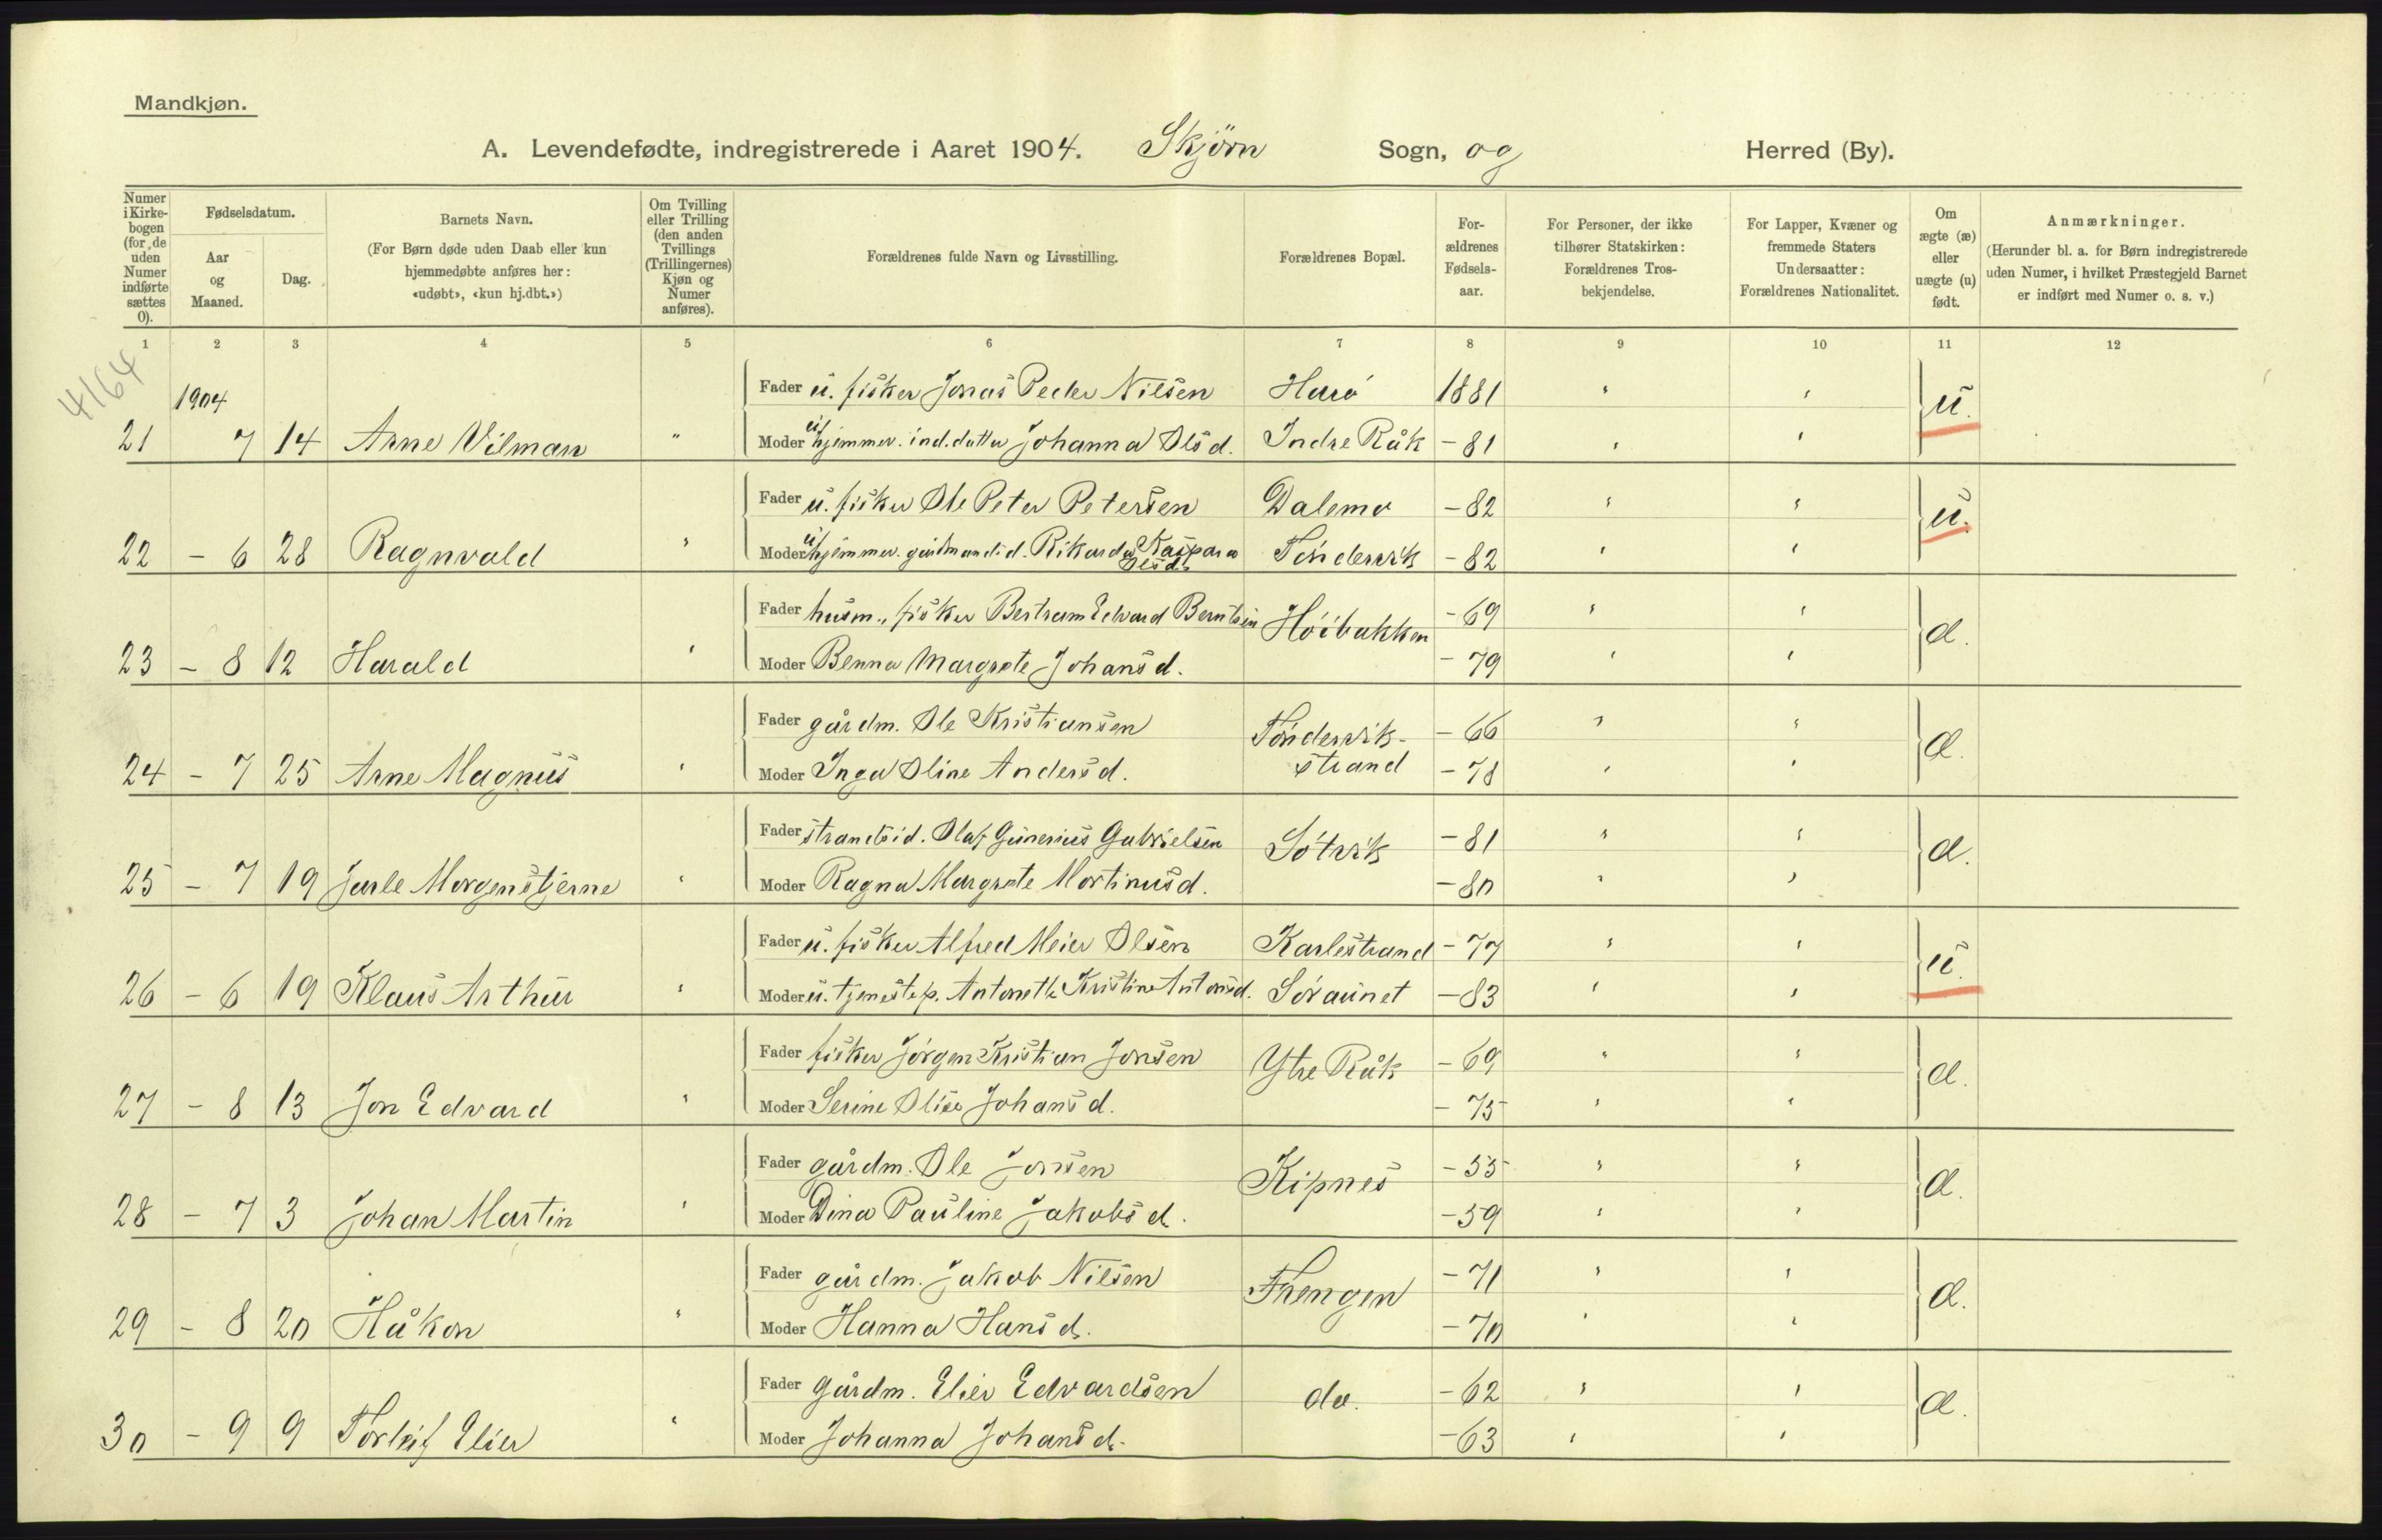 Mandkjøn.
A. Levendefødte, indregistrerede i Aaret 1904. Skjörn Sogn, og Herred (By).
Numer i Kirke-bogen (for de uden Numer indførte sættes 0).
Fødselsdatum.
Aar og Maaned.
Dag.
Barnets Navn.
(For Børn døde uden Daab eller kun hjemmedøbte anføres her: «udøbt», «kun hj.dbt.»)
Om Tvilling eller Trilling (den anden Tvillings (Trillingernes) Kjøn og Numer anføres).
Forældrenes fulde Navn og Livsstilling.
Forældrenes Bopæl.
For-ældrenes Fødsels-aar.
For Personer, der ikke tilhører Statskirken: Forældrenes Tros-bekjendelse.
For Lapper, Kvæner og fremmede Staters Undersaatter: Forældrenes Nationalitet.
Om ægte (æ) eller uægte (u) født.
Anmærkninger.
(Herunder bl. a. for Børn indregistrerede uden Numer, i hvilket Præstegjeld Barnet er indført med Numer o. s. v.)
1 2 3 4 5 6 7 8 9 10 11 12
4164
1904
Fader u. fisker Jonas Peder Nilsen Harö 1881 " " u.
21 7 14 Arne Vilman " Moder u. hjemmev. ind. datter Johanna Olsd. Indre Råk - 81 " "
Fader u. fisker Ole Peter Petersen Dalemo - 82 " " u.
22 - 6 28 Ragnvald " Moder u. hjemmev. gårdmandsd. Rikarda Kaspara Olsd. Töndervik - 82 " "
Fader husm., fisker Bertram Edvard Berntsen Höibakken - 69 " " æ.
23 - 8 12 Harald " Moder Benna Margrete Johansd. - 79 " "
Fader gårdm. Ole Kristiansen Töndervik- - 66 " " æ.
24 - 7 25 Arne Magnus " Moder Inga Oline Andersd. strand - 78 " "
Fader strandsid. Olaf Gunerius Gabrielsen Sötvik - 81 " " æ.
25 - 7 19 Jarle Morgenstjerne " Moder Ragna Margrete Mortinusd. - 80 " "
Fader u. fisker Alfred Meier Olsen Karlestrand - 77 " " u.
26 - 6 19 Klaus Arthur " Moder u. tjenestep. Antonette Kristine Antonsd. Söraunet - 83 " "
Fader fisker Jörgen Kristian Jonsen Ytre Råk - 69 " " æ.
27 - 8 13 Jon Edvard " Moder Serine Olise Johansd. - 75 " "
Fader gårdm. Ole Jonsen Kipnes - 55 " " æ.
28 - 7 3 Johan Martin " Moder Dina Pauline Jakobsd. - 59 " "
Fader gårdm. Jakob Nilsen Frengen - 71 " " æ.
29 - 8 20 Håkon " Moder Hanna Hansd. - 70 " "
Fader gårdm. Elier Edvardsen do. - 62 " " æ.
30 - 9 9 Torleif Elier " Moder Johanna Johansd. - 63 " "